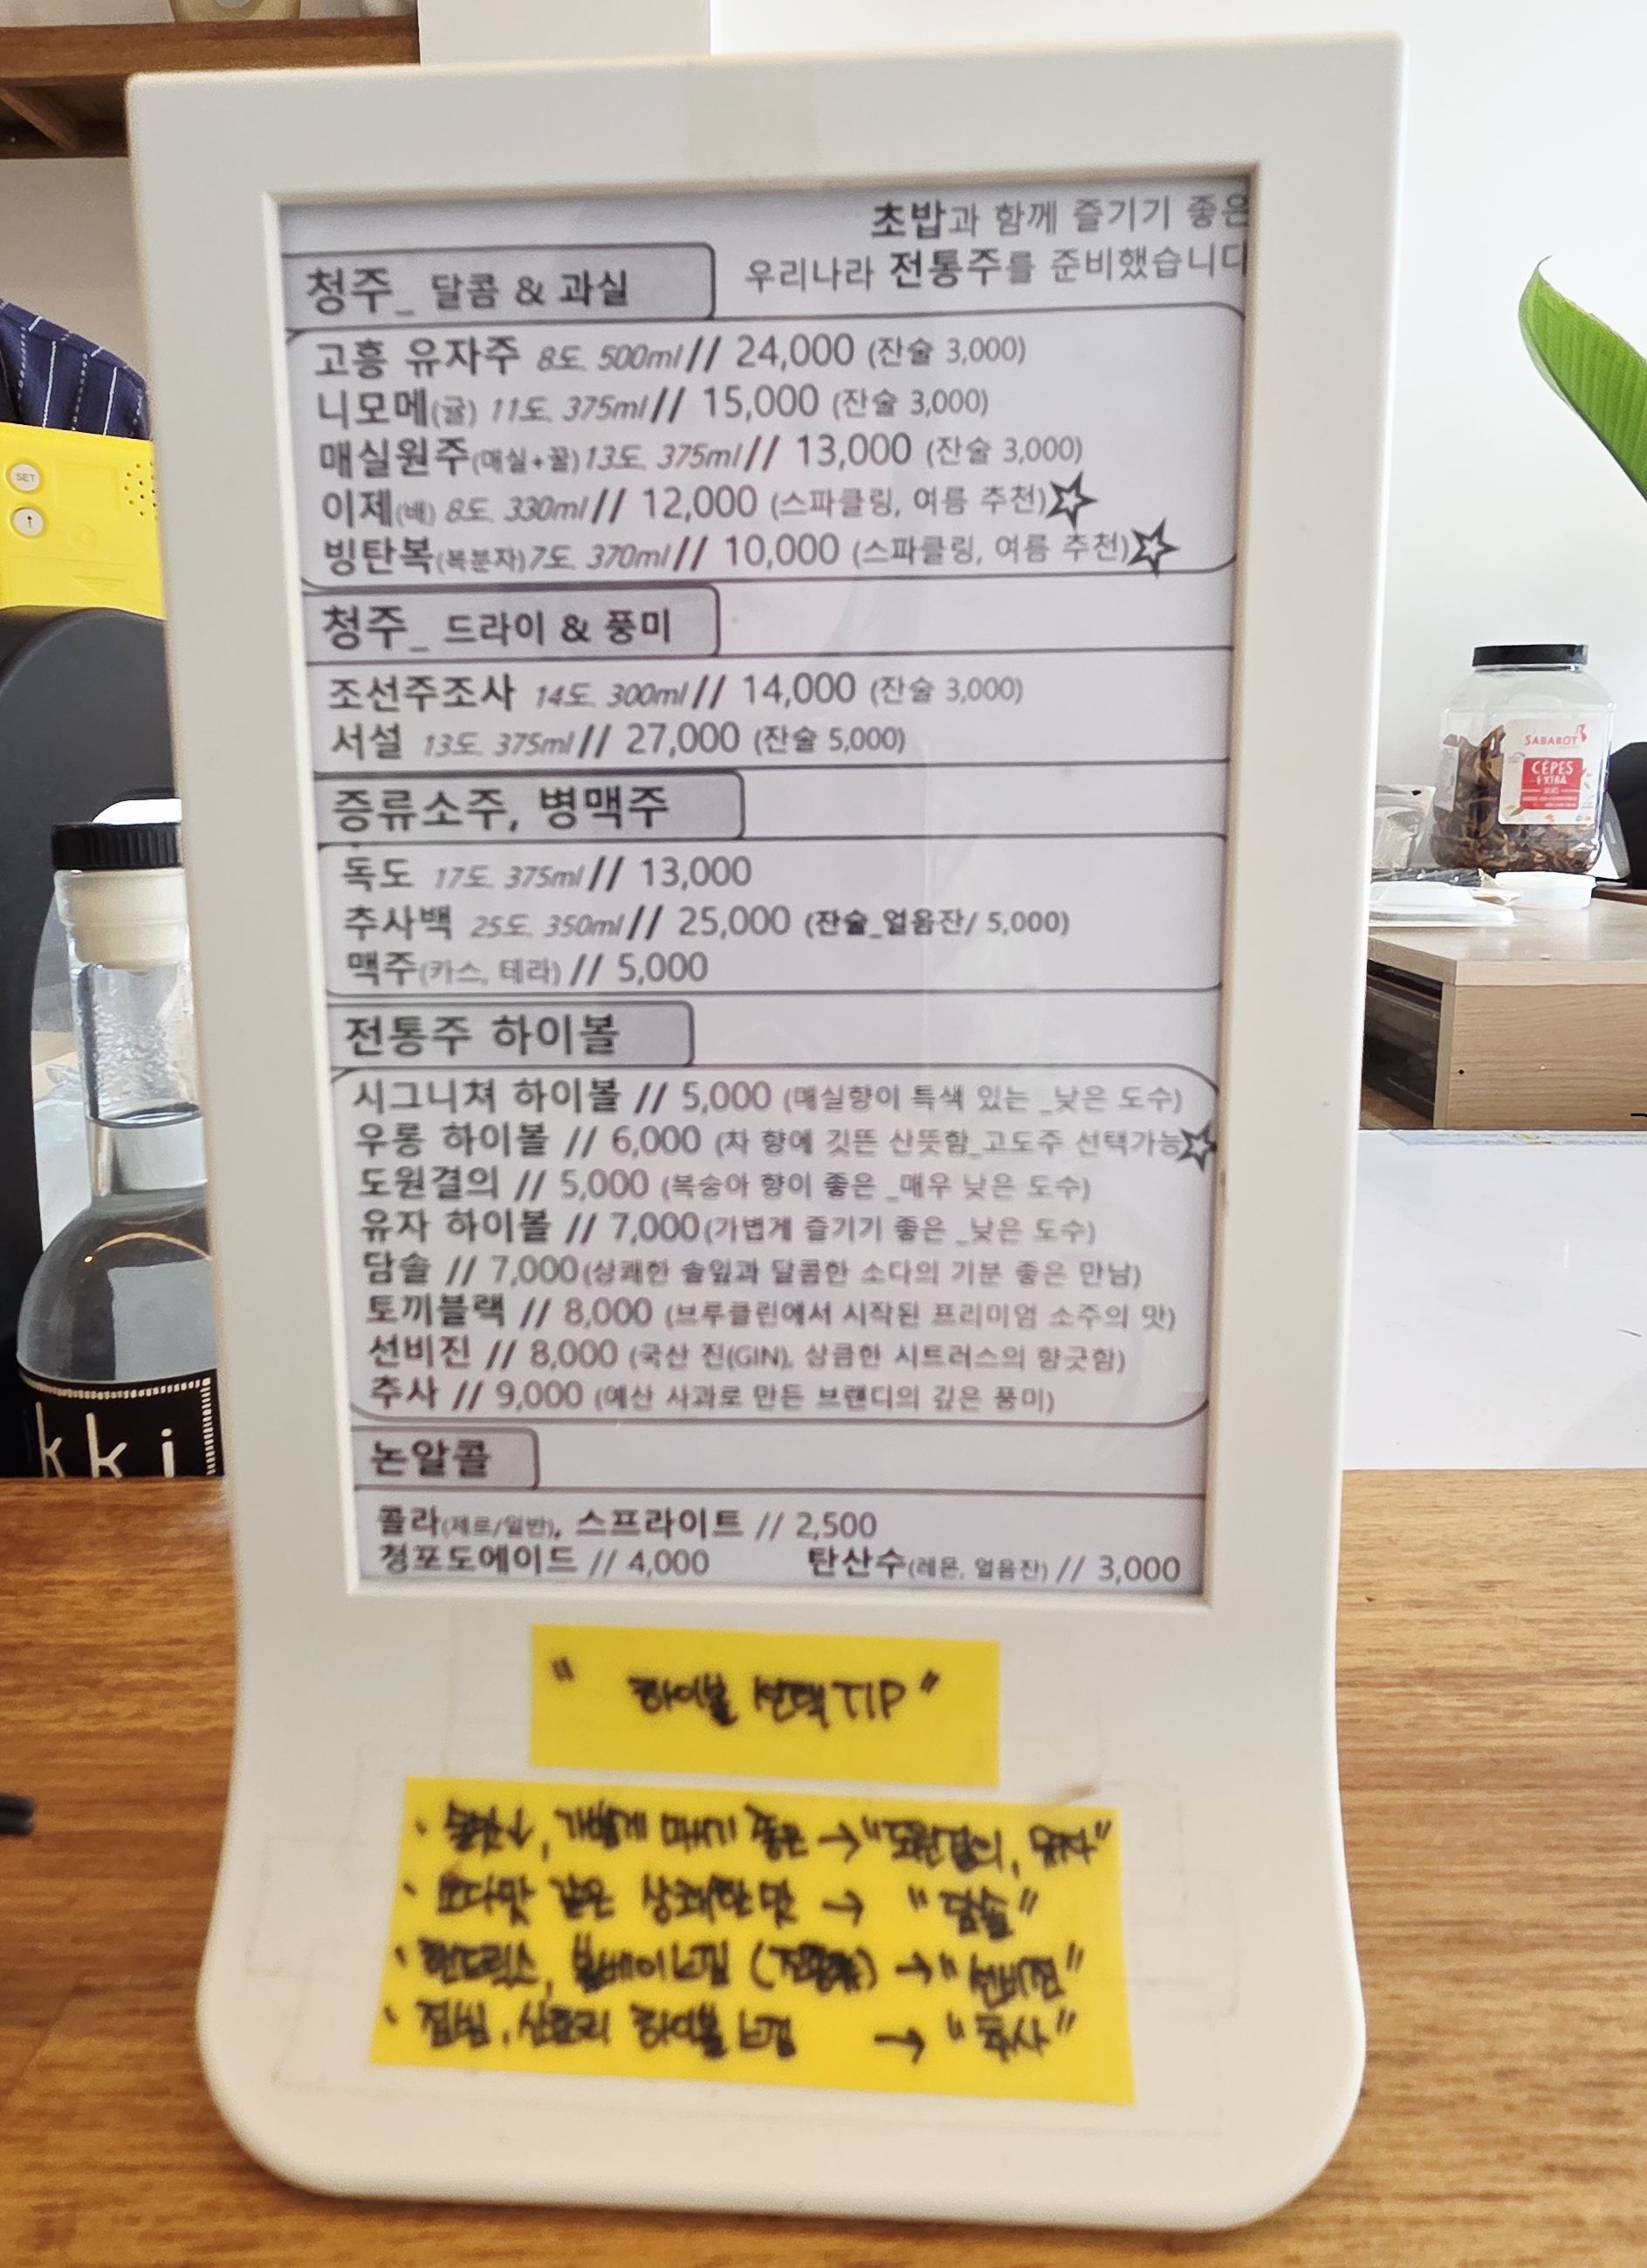 초밥과 함께 즐기기 좋은
우리나라 전통주를 준비했습니다
청주_ 달콤 & 과실
고흥 유자주 8도, 500ml// 24,000 (잔술 3,000)
니모메(귤) 11도, 375ml// 15,000 (잔술 3,000)
매실원주(매실+꿀)13도, 375ml// 13,000 (잔술 3,000)
이제(배) 8도, 330ml// 12,000 (스파클링, 여름 추천)☆
빙탄복(복분자)7도, 370ml// 10,000 (스파클링, 여름 추천)☆
청주_ 드라이 & 풍미
조선주조사 14도, 300ml// 14,000 (잔술 3,000)
서설 13도, 375ml// 27,000 (잔술 5,000)
증류소주, 병맥주
독도 17도, 375ml// 13,000
추사백 25도, 350ml// 25,000 (잔술_얼음잔/ 5,000)
맥주(카스, 테라) // 5,000
전통주 하이볼
시그니쳐 하이볼 // 5,000 (매실향이 특색 있는 _낮은 도수)
우롱 하이볼 // 6,000 (차 향에 깃뜬 산뜻함_고도주 선택가능☆
도원결의 // 5,000 (복숭아 향이 좋은 _매우 낮은 도수)
유자 하이볼 // 7,000(가볍게 즐기기 좋은 _낮은 도수)
담솔 // 7,000(상쾌한 솔잎과 달콤한 소다의 기분 좋은 만남)
토끼블랙 // 8,000 (브루클린에서 시작된 프리미엄 소주의 맛)
선비진 // 8,000 (국산 진(GIN), 상큼한 시트러스의 향긋함)
추사 // 9,000 (예산 사과로 만든 브랜디의 깊은 풍미)
논알콜
콜라(제로/일반), 스프라이트 // 2,500
청포도에이드 // 4,000 탄산수(레몬, 얼음잔) // 3,000
" 하이볼 선택 TIP "
가볍게 마시기 좋은 → "도원결의, 유자"
· 소다맛 같은 상쾌한 맛 → "담솔"
· 핸드릭스, 봄베이 느낌 → "선비진"
· 짐빔, 산토리 하이볼 느낌 → "추사"
SET
kki
SABAROT
CÈPES
EXTRA